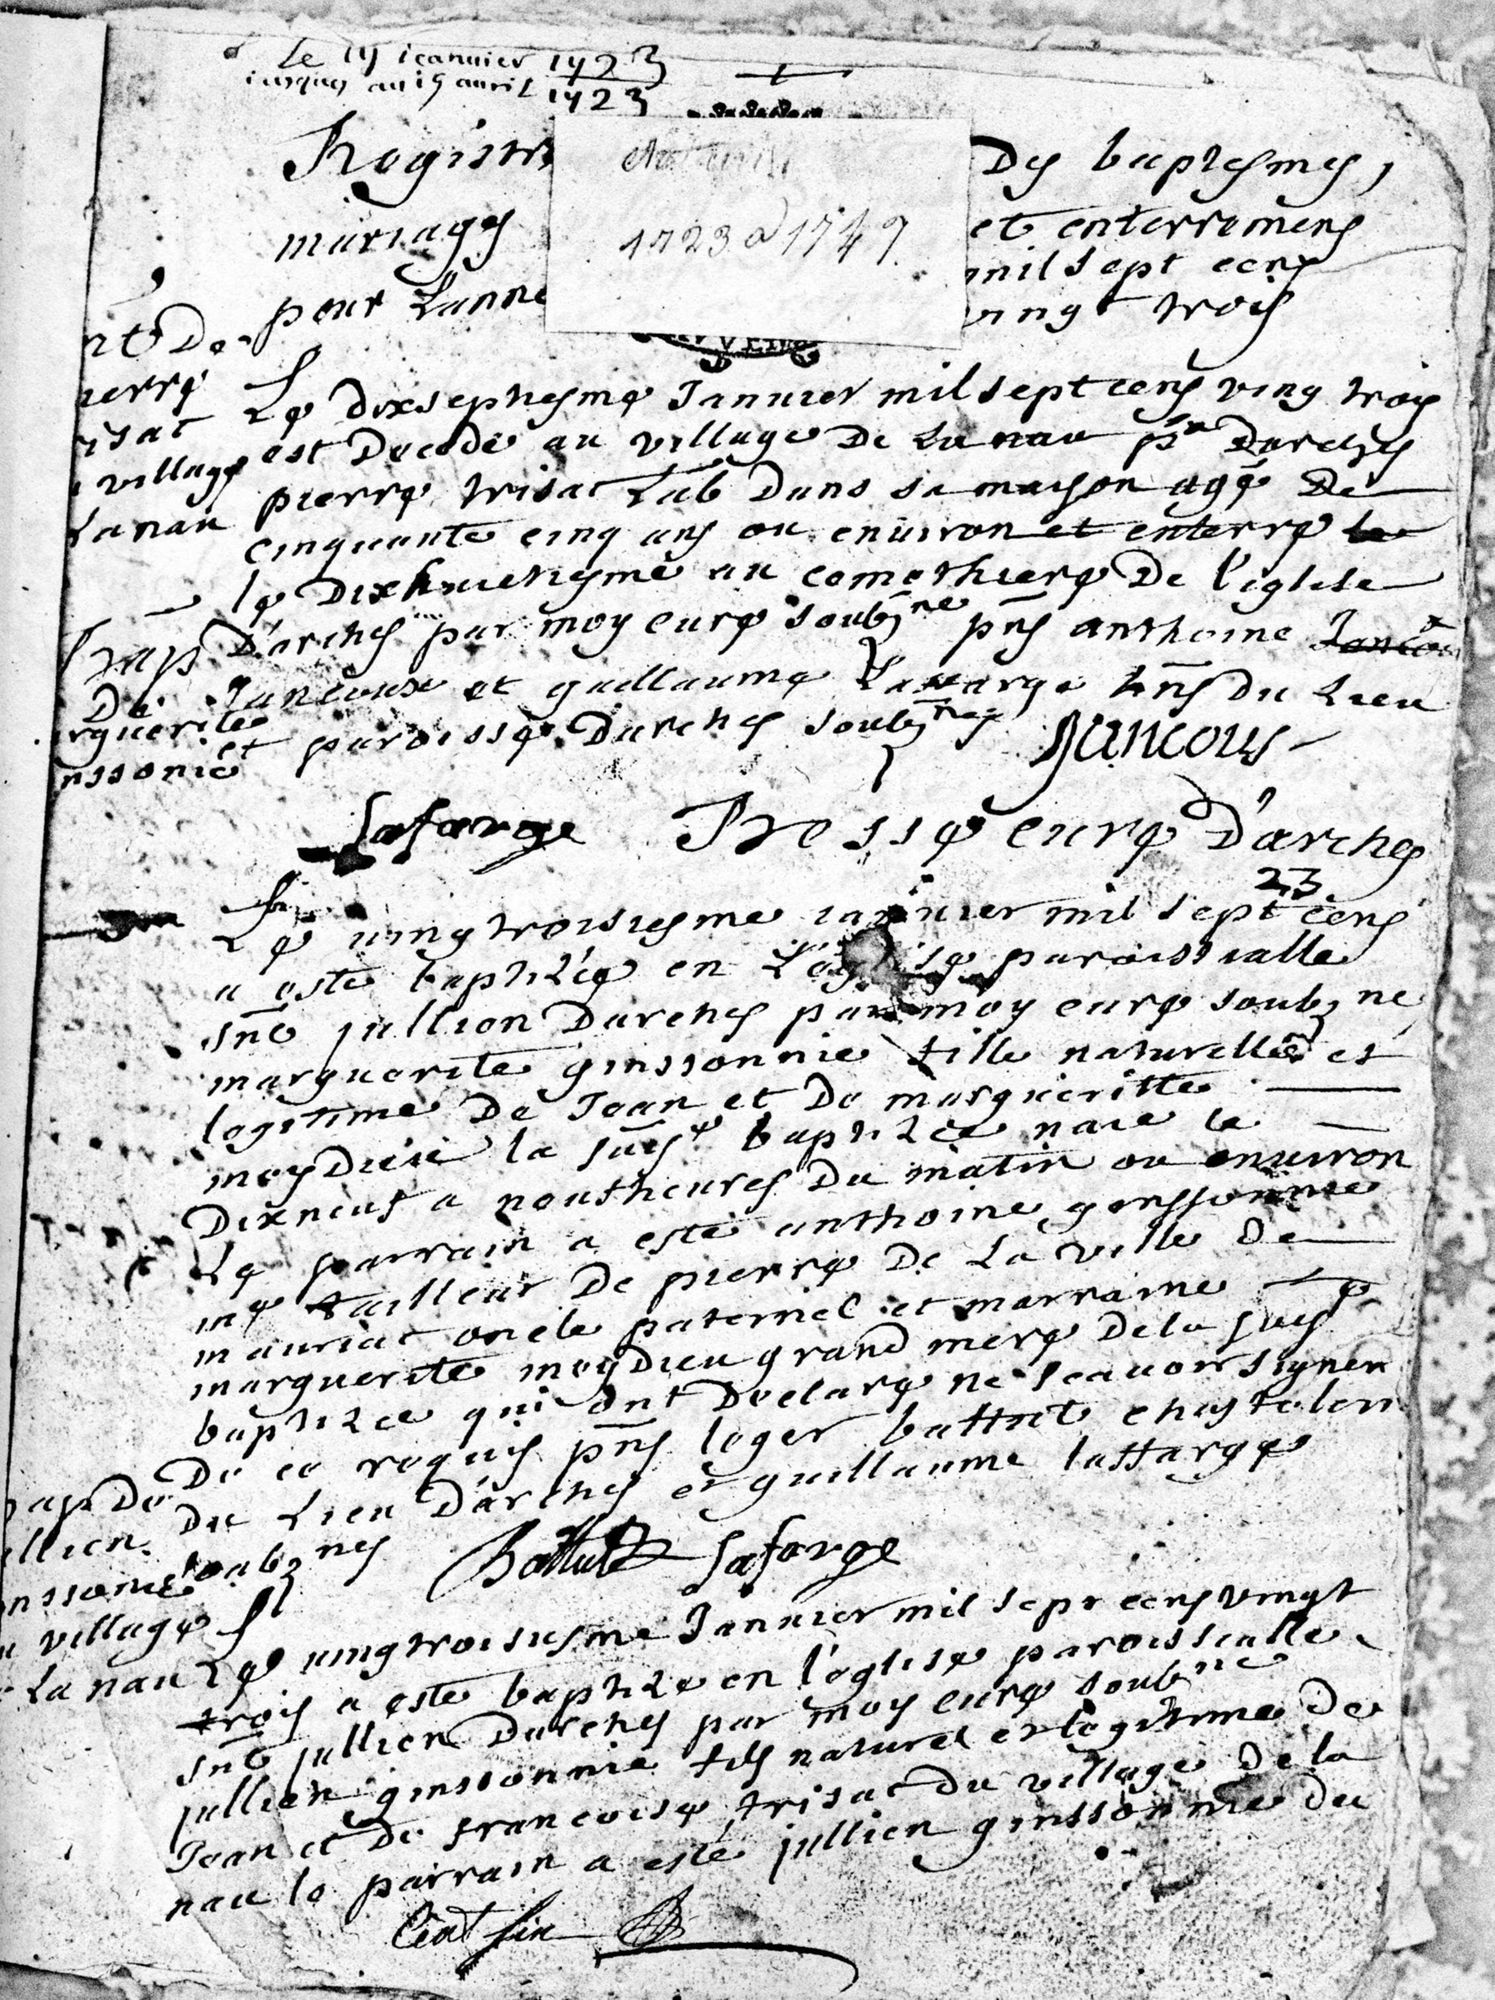 Le 17 ieanuier 1723
iusques au 15 auril 1723
Registre Des baptesmes,
1723 a 1749
mariages et enterremens
pour Lanne mil sept cens
vingt trois
nt De
ierre
isac
village
Lanau
Le dixseptiesme Januier mil sept cens ving trois
est Decede au village De Lanau psse Darches
pierre trisac Lab Dans sa maison agé De
cinquante cinq ans ou enuiron et enterre le
le Dixhuictiesme au cemethiere De l'eglise
D'arches par moy cure soubzne pns anthoine Jancou
De Jancoux et guillaume Lafarge hns Du Lieu
et paroisse Darches soubznes Jancous
bap
De
rguerite
nssonie
Lafarge Tresse cure D'arches
23
Le uingtroisiesme ianuier mil sept cens
a este baptizée en L'eglise paroissialle
snt jullien Darches par moy cure soubzne
marguerite ginssonnie fille naturelle et
legitime De Jean et De margueritte
moydieu la suse baptizée naie le
Dixneuf a neuf heures Du matin ou enuiron
Le parrain a este anthoine ginssonnie
me tailleur De pierre De La ville De
mauriac oncle paternel et marraine
marguerite moydieu grand mere De la suse
baptizee qui ont Declare ne scauoir signer
De ce requis pns leger battut chastelen
Du Lieu D'arches et guillaume laffarge
soubznes Battut Lafarge
bap De
ullien
nssonie
u village
Lanau
Le uingtroisiesme Januier mil sept cens vingt
trois a este baptize en l'eglise paroissialle
snt jullien Darches par moy cure soubne
jullien ginssonnie fils naturel et legitime De
Jean et De francoise trisac Du village De la
nau le parrain a esté jullien ginssonnie du